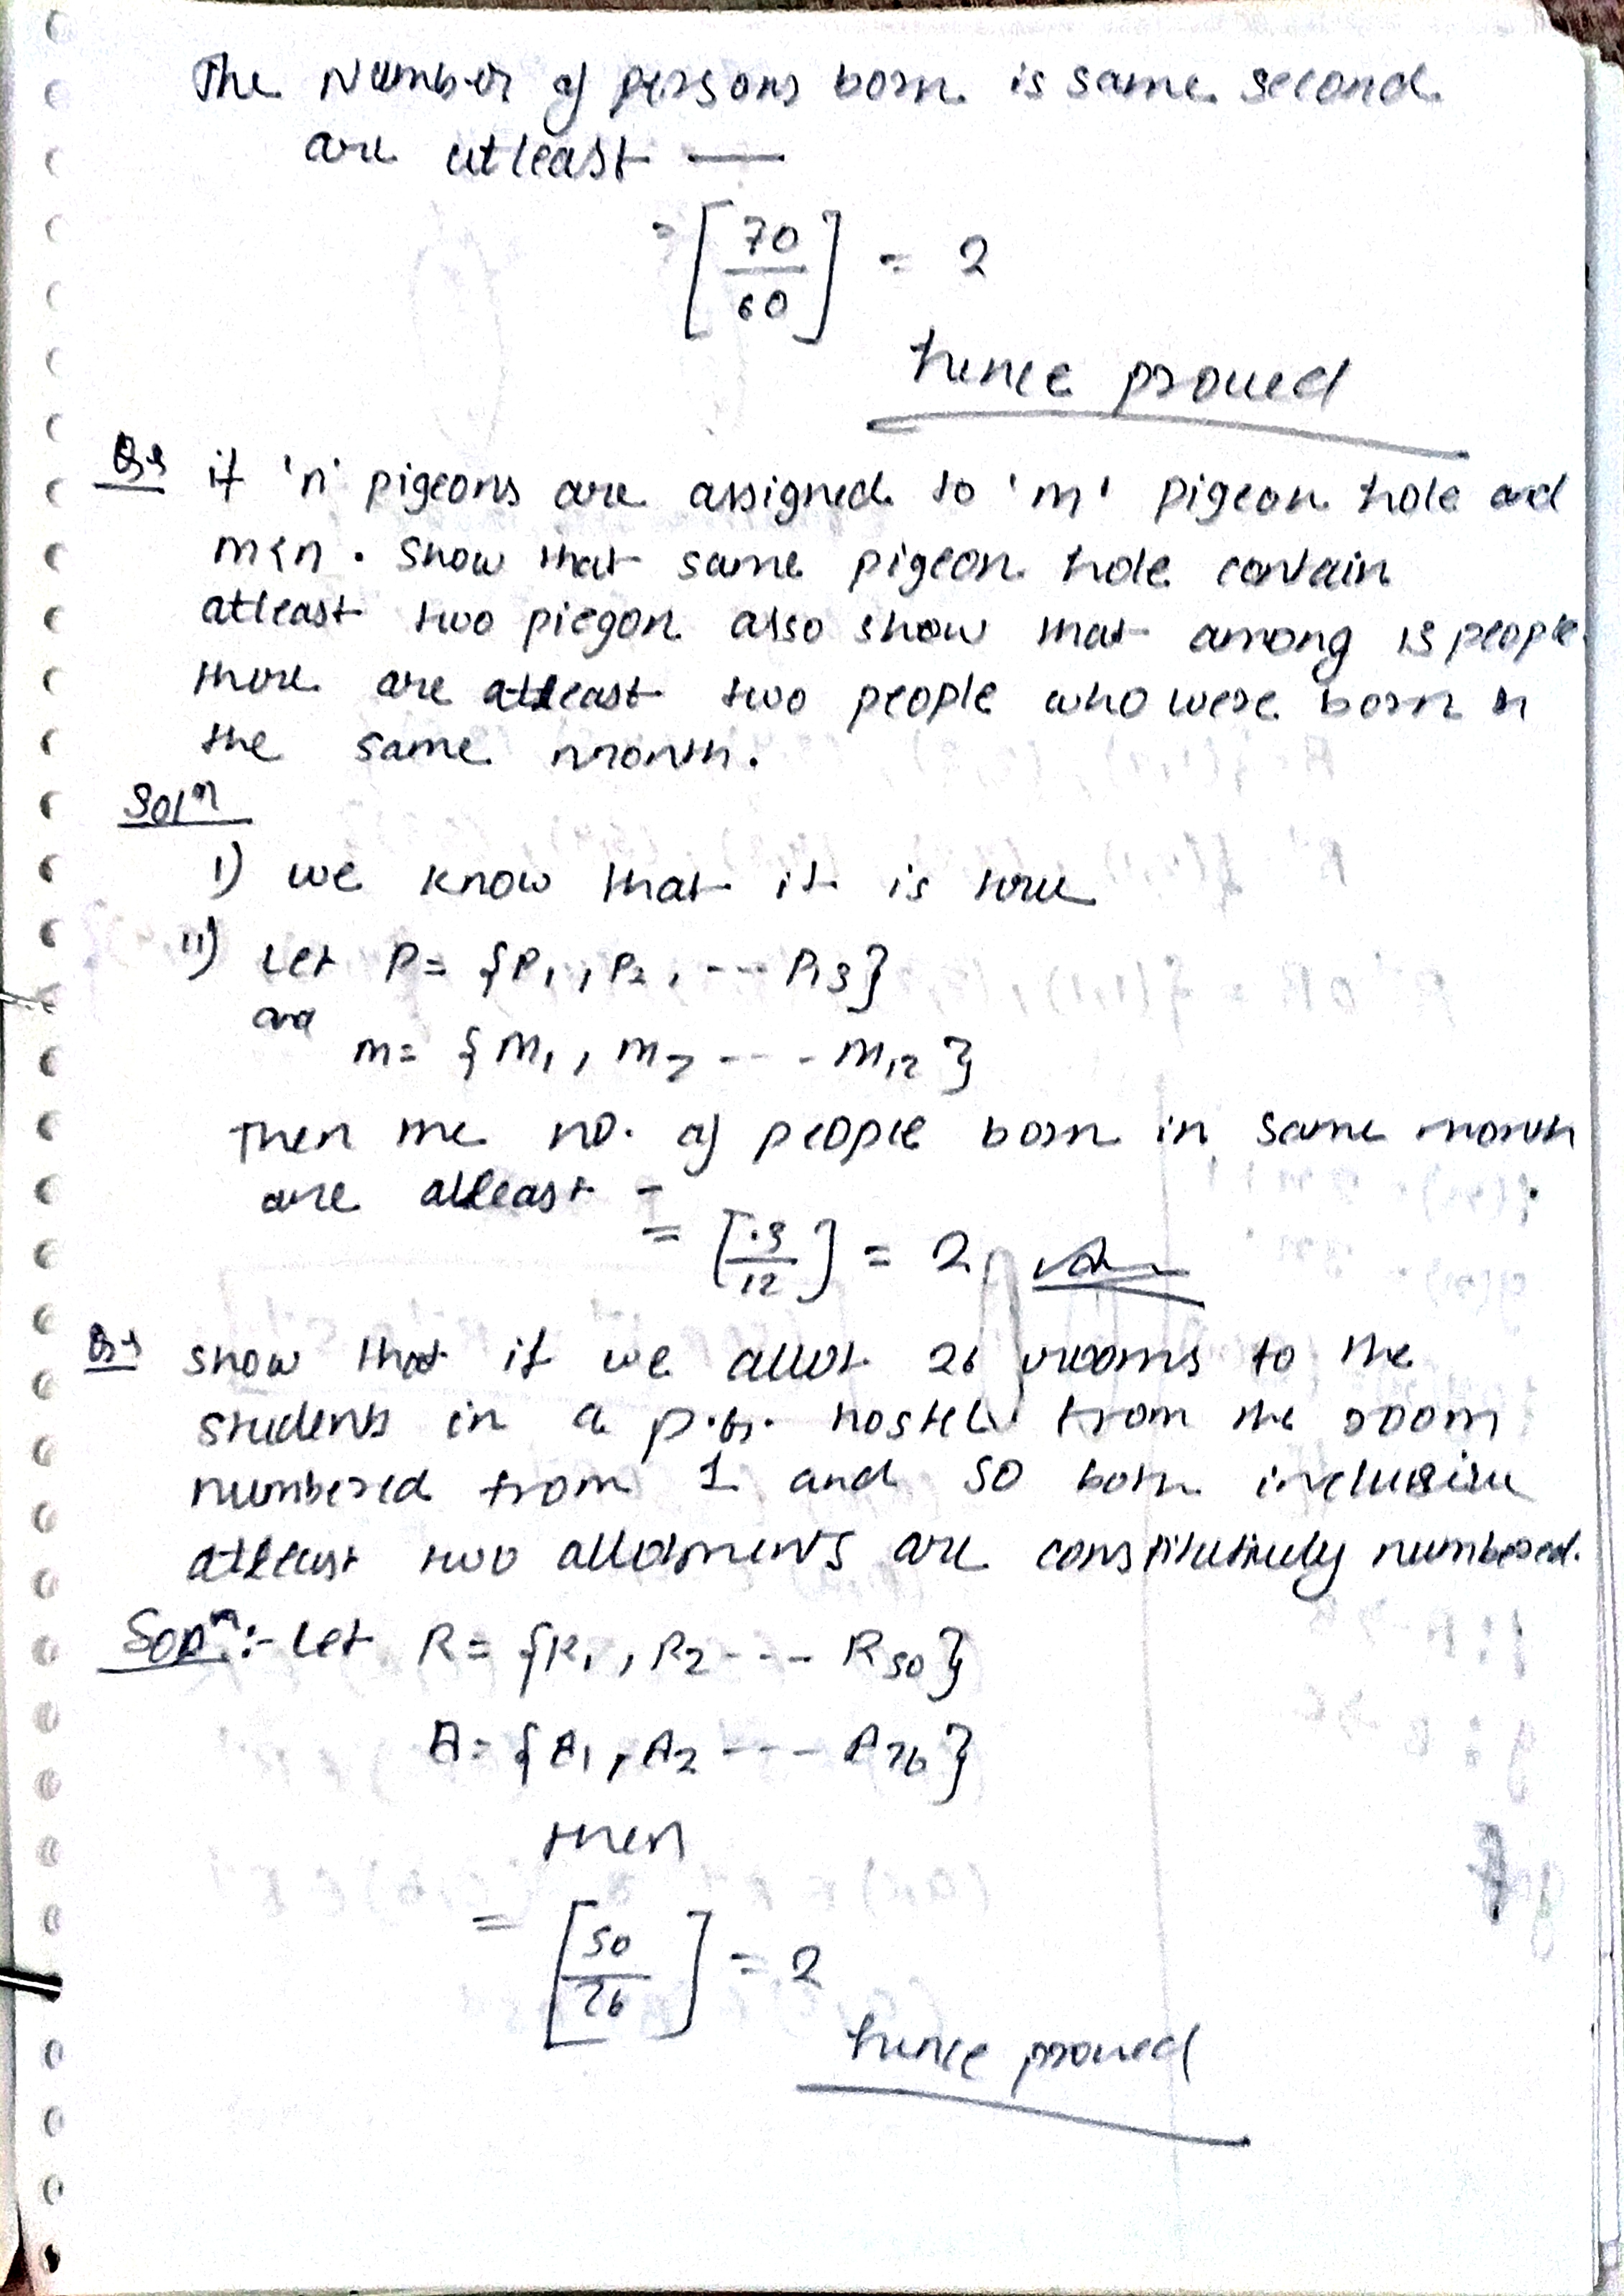 The Number of persons born is same second
are atleast —
= [70/60] = 2
hence proved
Q→ if 'n' pigeons are assigned to 'm' pigeon hole and
m<n. Show that same pigeon hole contain
atleast two piegon also show that among 13 people
there are atleast two people who were born in
the same month.
Solⁿ
i) we know that it is true
ii) Let P = {P₁, P₂, --- P₁₃}
and
m = {M₁, M₂ --- M₁₂}
Then the no. of people born in same month
are atleast -
= [13/12] = 2
Q→ show that if we allot 26 rooms to the
students in a p.g. hostel from the room
numbered from 1 and 50 both inclusive
atleast two allotments are constitutively numbered.
Solⁿ:- Let R = {R₁, R₂ --- R₅₀}
A = {A₁, A₂ --- A₂₆}
then
= [50/26] = 2
hence proved